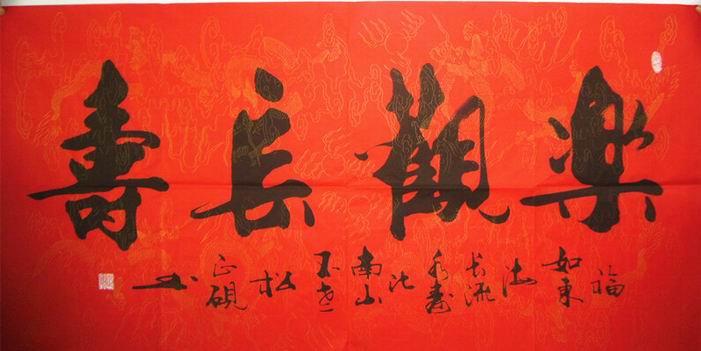 樂觀長壽
福如東海長流水壽比南山不老松 正硯书